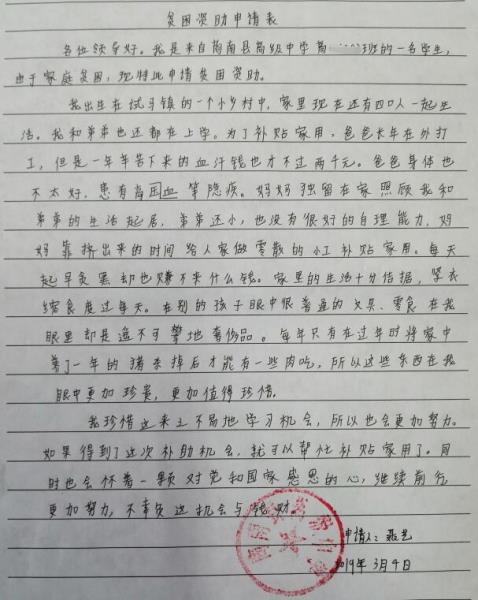 贫困资助申请表
各位领导好。我是来自商南县高级中学高班的一名学生,
由于家庭贫困,现特此申请贫困资助。
我出生在试马镇的一个小乡村中,家里现在还有四口人一起生
活。我和弟弟也还都在上学。为了补贴家用,爸爸长年在外打
工,但是一年辛苦下来的血汗钱也才不过两千元。爸爸身体也
不太好,患有高固血等隐疾。妈妈独留在家照顾我和
弟弟的生活起居,弟弟还小,也没有很好的自理能力,妈
妈靠挤出来的时间给人家做零散的小工补贴家用。每天
起早贪黑却也赚不来什么钱。家里的生活十分拮据,紧衣
缩食度过每天。在别的孩子眼中很普通的文具、零食在我
眼里却是遥不可攀地奢侈品。每年只有在过年时将家中
养了一年的猪杀掉后才能有一些肉吃,所以这些东西在我
眼中更加珍贵,更加值得珍惜。
我珍惜这来之不易地学习机会,所以也会更加努力。
如果得到了这次补助机会,就可以帮忙补贴家用了。同
时也会怀着一颗对党和国家感恩的心,继续前行
更加努力,不辜负这机会与钱财。
申请人:聂艺
2019年3月4日